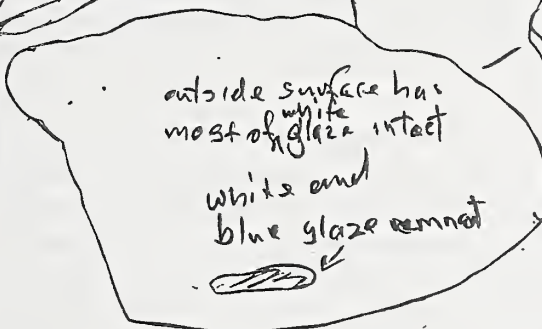 outside surface has
most of white glaze intact
white and
blue glaze remnat